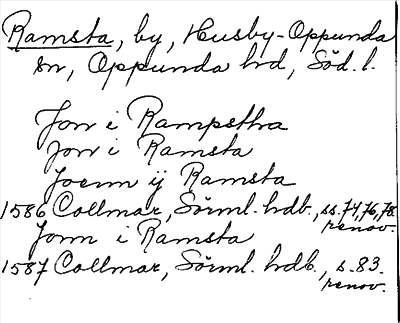 Ramsta, by, Husby-Oppunda
sn, Oppunda hd, Söd. l.
Jon i Rampstha
Jon i Ramsta
Joenn ij Ramsta
1586 Collmar, Sörml. hdb., ss. 74, 76, 78.
renov.
Jonn i Ramsta
1587 Collmar, Sörml. hdb., s. 83.
renov.